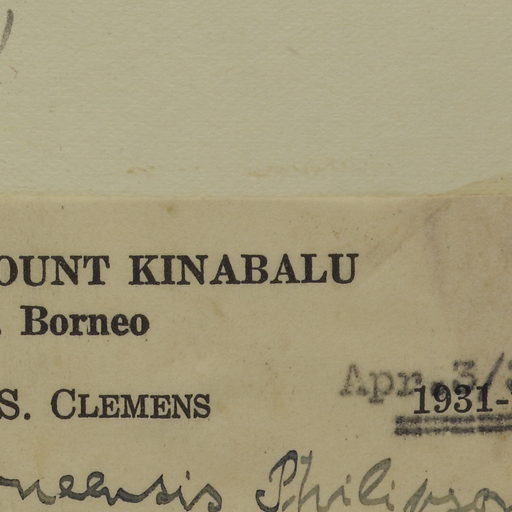 OUNT KINABALU
. Borneo
Apr. 3/3
S. CLEMENS 1931-
neensis Philipson